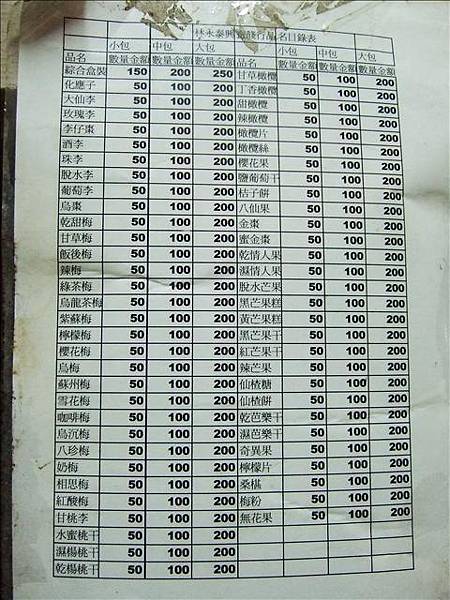 林永泰興蜜餞行品名目錄表
小包 中包 大包 小包 中包 大包
品名 數量金額 數量金額 數量金額 品名 數量金額 數量金額 數量金額
綜合盒裝 150 200 250 甘草橄欖 50 100 200
化應子 50 100 200 丁香橄欖 50 100 200
大仙李 50 100 200 甜橄欖 50 100 200
玫瑰李 50 100 200 辣橄欖 50 100 200
李仔棗 50 100 200 橄欖片 50 100 200
酒李 50 100 200 橄欖絲 50 100 200
珠李 50 100 200 櫻花果 50 100 200
脫水李 50 100 200 鹽葡萄干 50 100 200
葡萄李 50 100 200 桔子餅 50 100 200
烏棗 50 100 200 八仙果 50 100 200
乾甜梅 50 100 200 金棗 50 100 200
甘草梅 50 100 200 蜜金棗 50 100 200
飯後梅 50 100 200 乾情人果 50 100 200
辣梅 50 100 200 濕情人果 50 100 200
綠茶梅 50 100 200 脫水芒果 50 100 200
烏龍茶梅 50 100 200 黑芒果糕 50 100 200
紫蘇梅 50 100 200 黃芒果糕 50 100 200
檸檬梅 50 100 200 黑芒果干 50 100 200
櫻花梅 50 100 200 紅芒果干 50 100 200
烏梅 50 100 200 辣芒果 50 100 200
蘇州梅 50 100 200 仙楂糖 50 100 200
雪花梅 50 100 200 仙楂餅 50 100 200
咖啡梅 50 100 200 乾芭樂干 50 100 200
烏沉梅 50 100 200 濕芭樂干 50 100 200
八珍梅 50 100 200 奇異果 50 100 200
奶梅 50 100 200 檸檬片 50 100 200
相思梅 50 100 200 桑椹 50 100 200
紅酸梅 50 100 200 梅粉 50 100 200
甘桃李 50 100 200 無花果 50 100 200
水蜜桃干 50 100 200
濕楊桃干 50 100 200
乾楊桃干 50 100 200